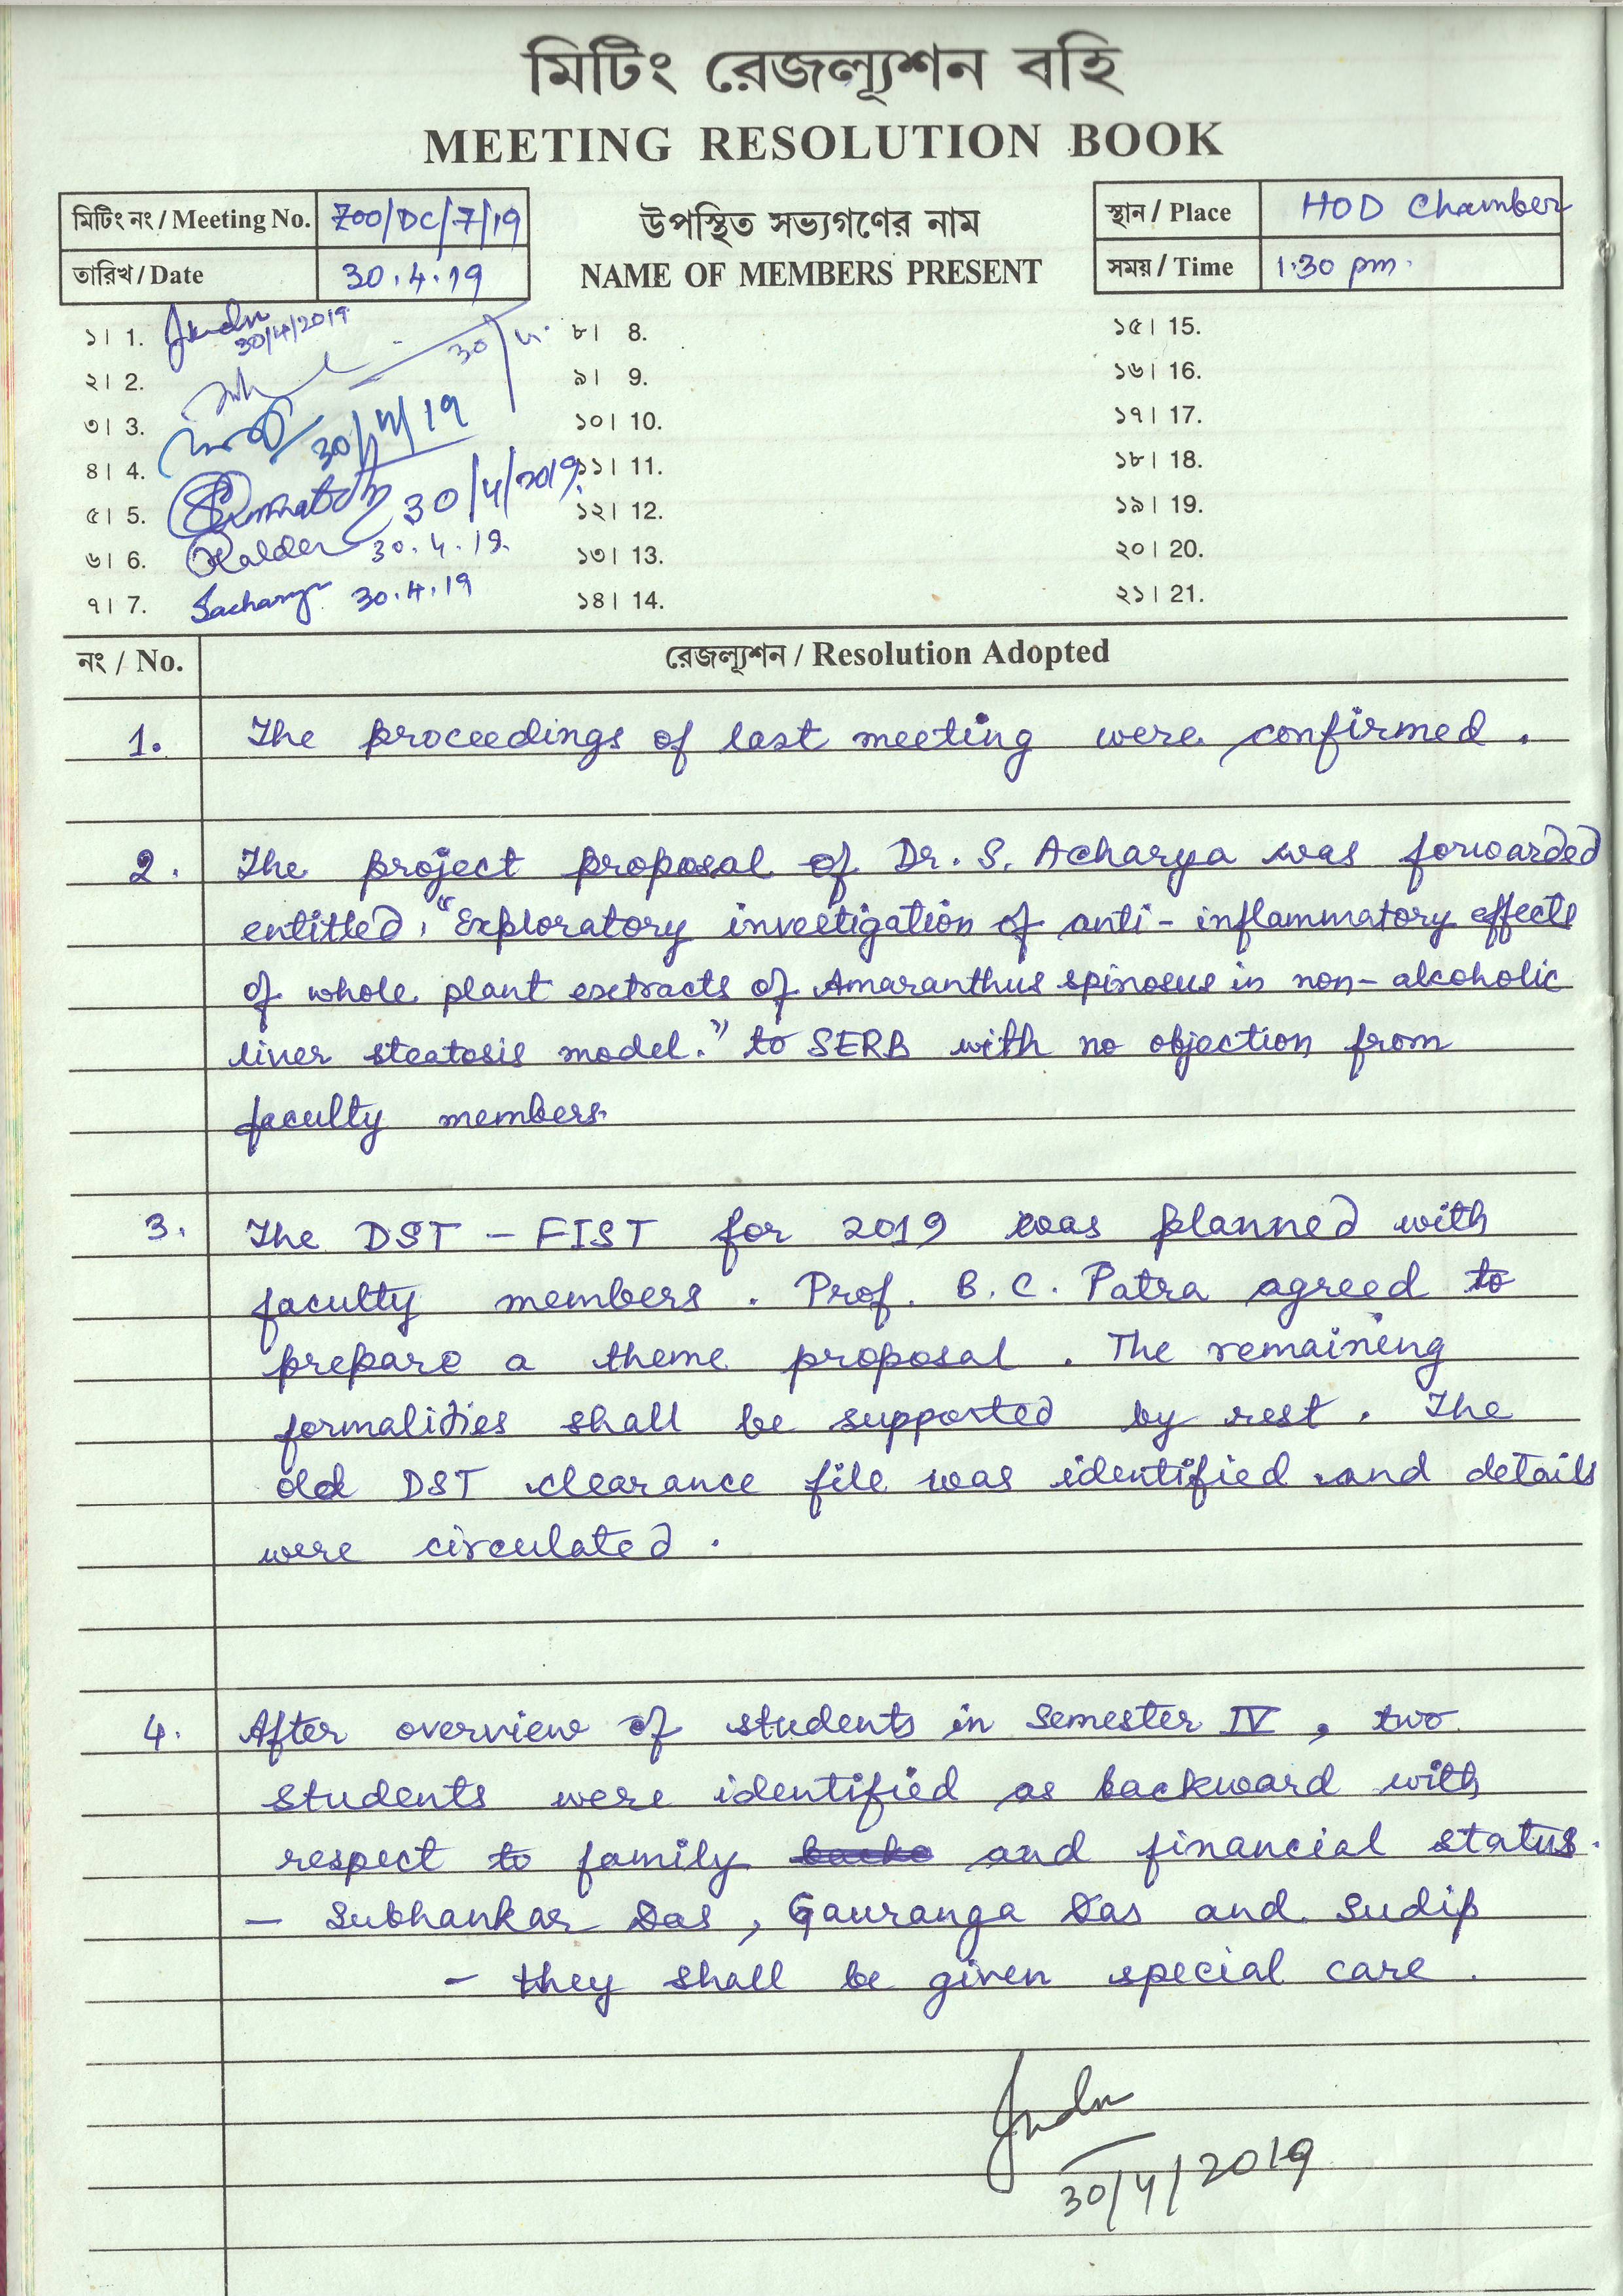 মিটিং রেজল্যূশন বহি
MEETING RESOLUTION BOOK
মিটিং নং / Meeting No. ZOO/DC/7/19
তারিখ / Date 30.4.19
উপস্থিত সভ্যগণের নাম
NAME OF MEMBERS PRESENT
স্থান / Place HOD Chamber
সময় / Time 1.30 pm.
১। 1. 30/4/2019
২। 2. 30/4
৩। 3. 30/4/19
৪। 4.
৫। 5. 30/4/2019
৬। 6. Halder 30.4.19
৭। 7. Sacharya 30.4.19
৮। 8.
৯। 9.
১০। 10.
১১। 11.
১২। 12.
১৩। 13.
১৪। 14.
১৫। 15.
১৬। 16.
১৭। 17.
১৮। 18.
১৯। 19.
২০। 20.
২১। 21.
নং / No. রেজল্যূশন / Resolution Adopted
1. The proceedings of last meeting were confirmed.
2. The project proposal of Dr. S. Acharya was forwarded
entitled, "Exploratory investigation of anti-inflammatory effects
of whole plant extracts of Amaranthus spinosus in non-alcoholic
liver steatosis model." to SERB with no objection from
faculty members.
3. The DST - FIST for 2019 was planned with
faculty members. Prof. B. C. Patra agreed to
prepare a theme proposal. The remaining
formalities shall be supported by rest. The
old DST clearance file was identified and details
were circulated.
4. After overview of students in Semester IV, two
students were identified as backward with
respect to family and financial status.
- Subhankar Das, Gauranga Das and Sudip
- they shall be given special care.
30/4/2019